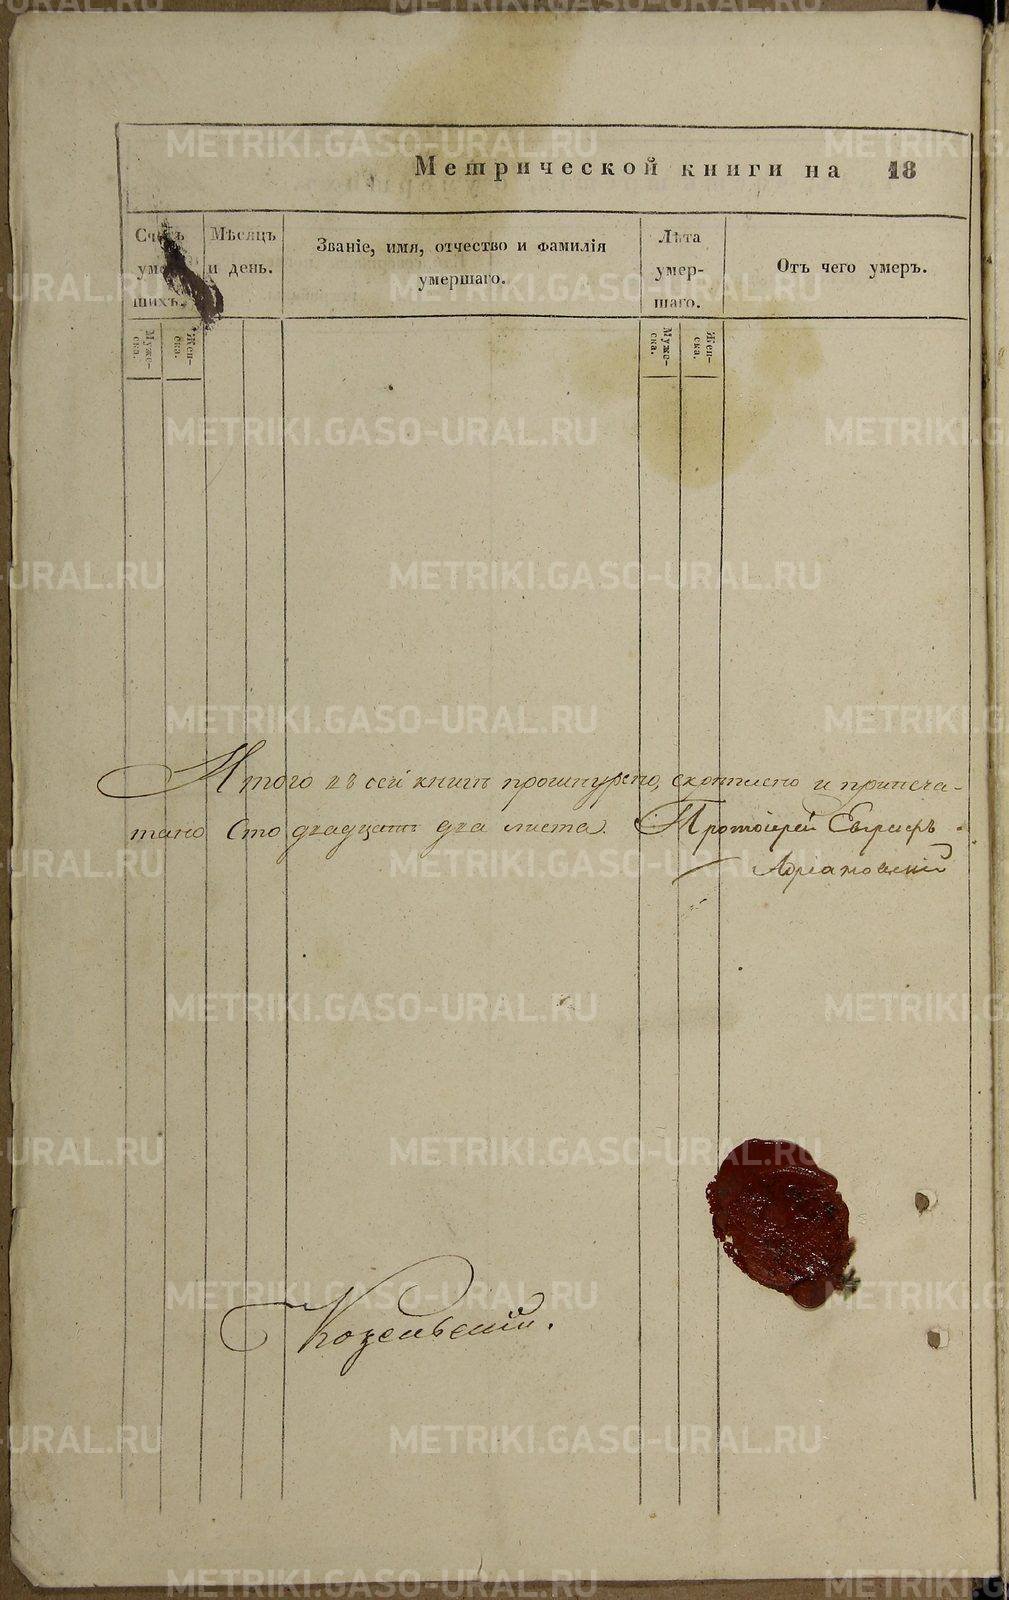 Метрической книги на 18
Счетъ умершихъ.
Мѣсяцъ и день.
Званіе, имя, отчество и фамилія
умершаго.
Лѣта
умер-
шаго.
Отъ чего умеръ.
Муже-
ска.
Жен-
ска.
Муже-
ска.
Жен-
ска.
Итого въ сей книгѣ прошнуровано, скрѣплено и припеча-
тано Сто двадцать два листа. Протоіерей Евграфъ
Адріановскій
Козельскій.
METRIKI.GASO-URAL.RU